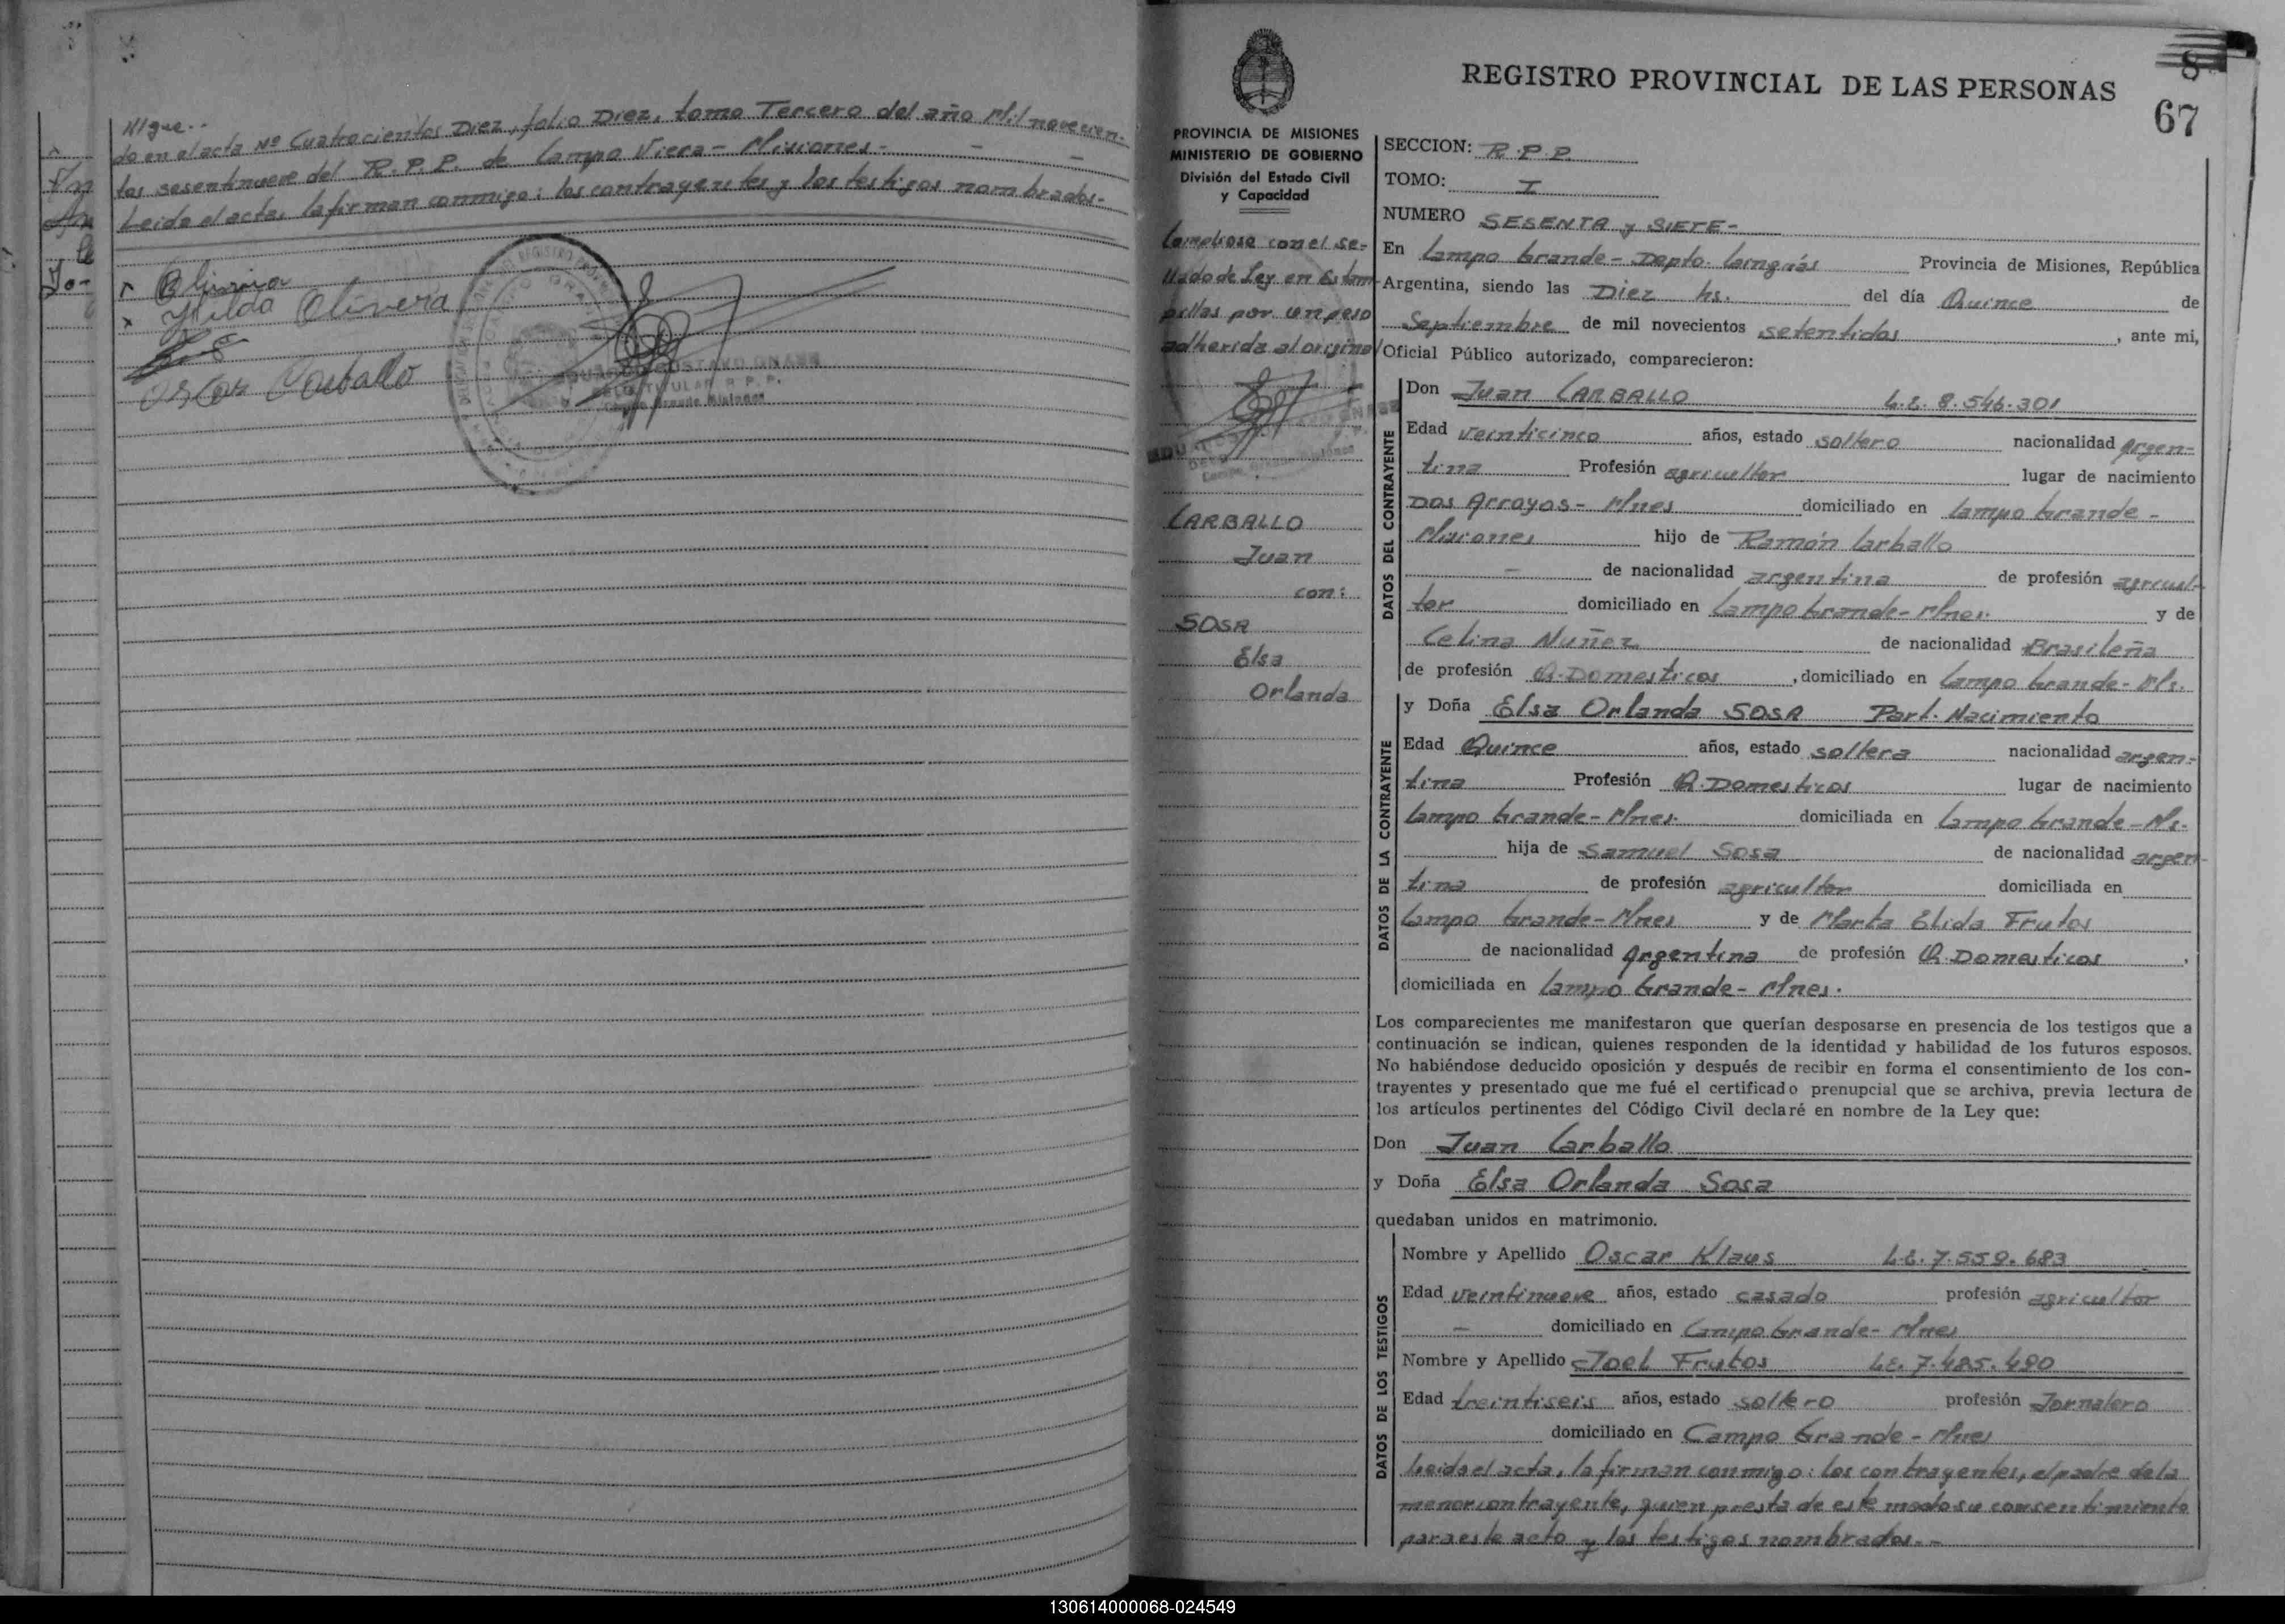 sigue..
do en el acta Nº Cuatrocientos Diez, folio Diez, tomo Tercero del año Mil novecien-
tos sesentinueve del R.P.P. de Campo Viera - Misiones - - -
Leida el acta, la firman conmigo: los contrayentes y los testigos nombrados.-
Hilda Olivera
Oscar Carballo
8
REGISTRO PROVINCIAL DE LAS PERSONAS
67
PROVINCIA DE MISIONES
MINISTERIO DE GOBIERNO
División del Estado Civil
y Capacidad
Cumpliose con el se-
llado de Ley en Estam-
pillas por un peso
adherida al original
CARBALLO
Juan
con:
SOSA
Elsa
Orlanda
SECCION: R.P.P.
TOMO: I
NUMERO SESENTA y SIETE-
En Campo Grande - Depto. Cainguás Provincia de Misiones, República
Argentina, siendo las Diez hs. del día Quince de
Septiembre de mil novecientos setentidos, ante mi,
Oficial Público autorizado, comparecieron:
DATOS DEL CONTRAYENTE
Don Juan CARBALLO L.E. 8.546.301
Edad veinticinco años, estado soltero nacionalidad argen-
tina Profesión agricultor lugar de nacimiento
Dos Arroyos - Mnes domiciliado en Campo Grande -
Misiones hijo de Ramón Carballo
- de nacionalidad argentina de profesión agricul-
tor domiciliado en Campo Grande - Mnes. y de
Celina Nuñez de nacionalidad Brasileña
de profesión Q. Domesticos, domiciliado en Campo Grande - Ms.
DATOS DE LA CONTRAYENTE
y Doña Elsa Orlanda SOSA Part. Nacimiento
Edad Quince años, estado soltera nacionalidad argen-
tina Profesión Q. Domesticos lugar de nacimiento
Campo Grande - Mnes. domiciliada en Campo Grande - Ms.
hija de Samuel Sosa de nacionalidad argen-
tina de profesión agricultor domiciliada en
Campo Grande - Mnes y de Marta Elida Frutos
de nacionalidad Argentina de profesión Q. Domesticos,
domiciliada en Campo Grande - Mnes.
Los comparecientes me manifestaron que querían desposarse en presencia de los testigos que a
continuación se indican, quienes responden de la identidad y habilidad de los futuros esposos.
No habiéndose deducido oposición y después de recibir en forma el consentimiento de los con-
trayentes y presentado que me fué el certificado prenupcial que se archiva, previa lectura de
los artículos pertinentes del Código Civil declaré en nombre de la Ley que:
Don Juan Carballo
y Doña Elsa Orlanda Sosa
quedaban unidos en matrimonio.
DATOS DE LOS TESTIGOS
Nombre y Apellido Oscar Klaus L.E. 7.559.683
Edad veintinueve años, estado casado profesión agricultor
- domiciliado en Campo Grande - Mnes
Nombre y Apellido Joel Frutos L.E. 7.485.490
Edad treintiseis años, estado soltero profesión Jornalero
domiciliado en Campo Grande - Mnes
Leida el acta, la firman conmigo: los contrayentes, el padre de la
menor contrayente, quien presta de este modo su consentimiento
para este acto y los testigos nombrados.--
130614000068-024549